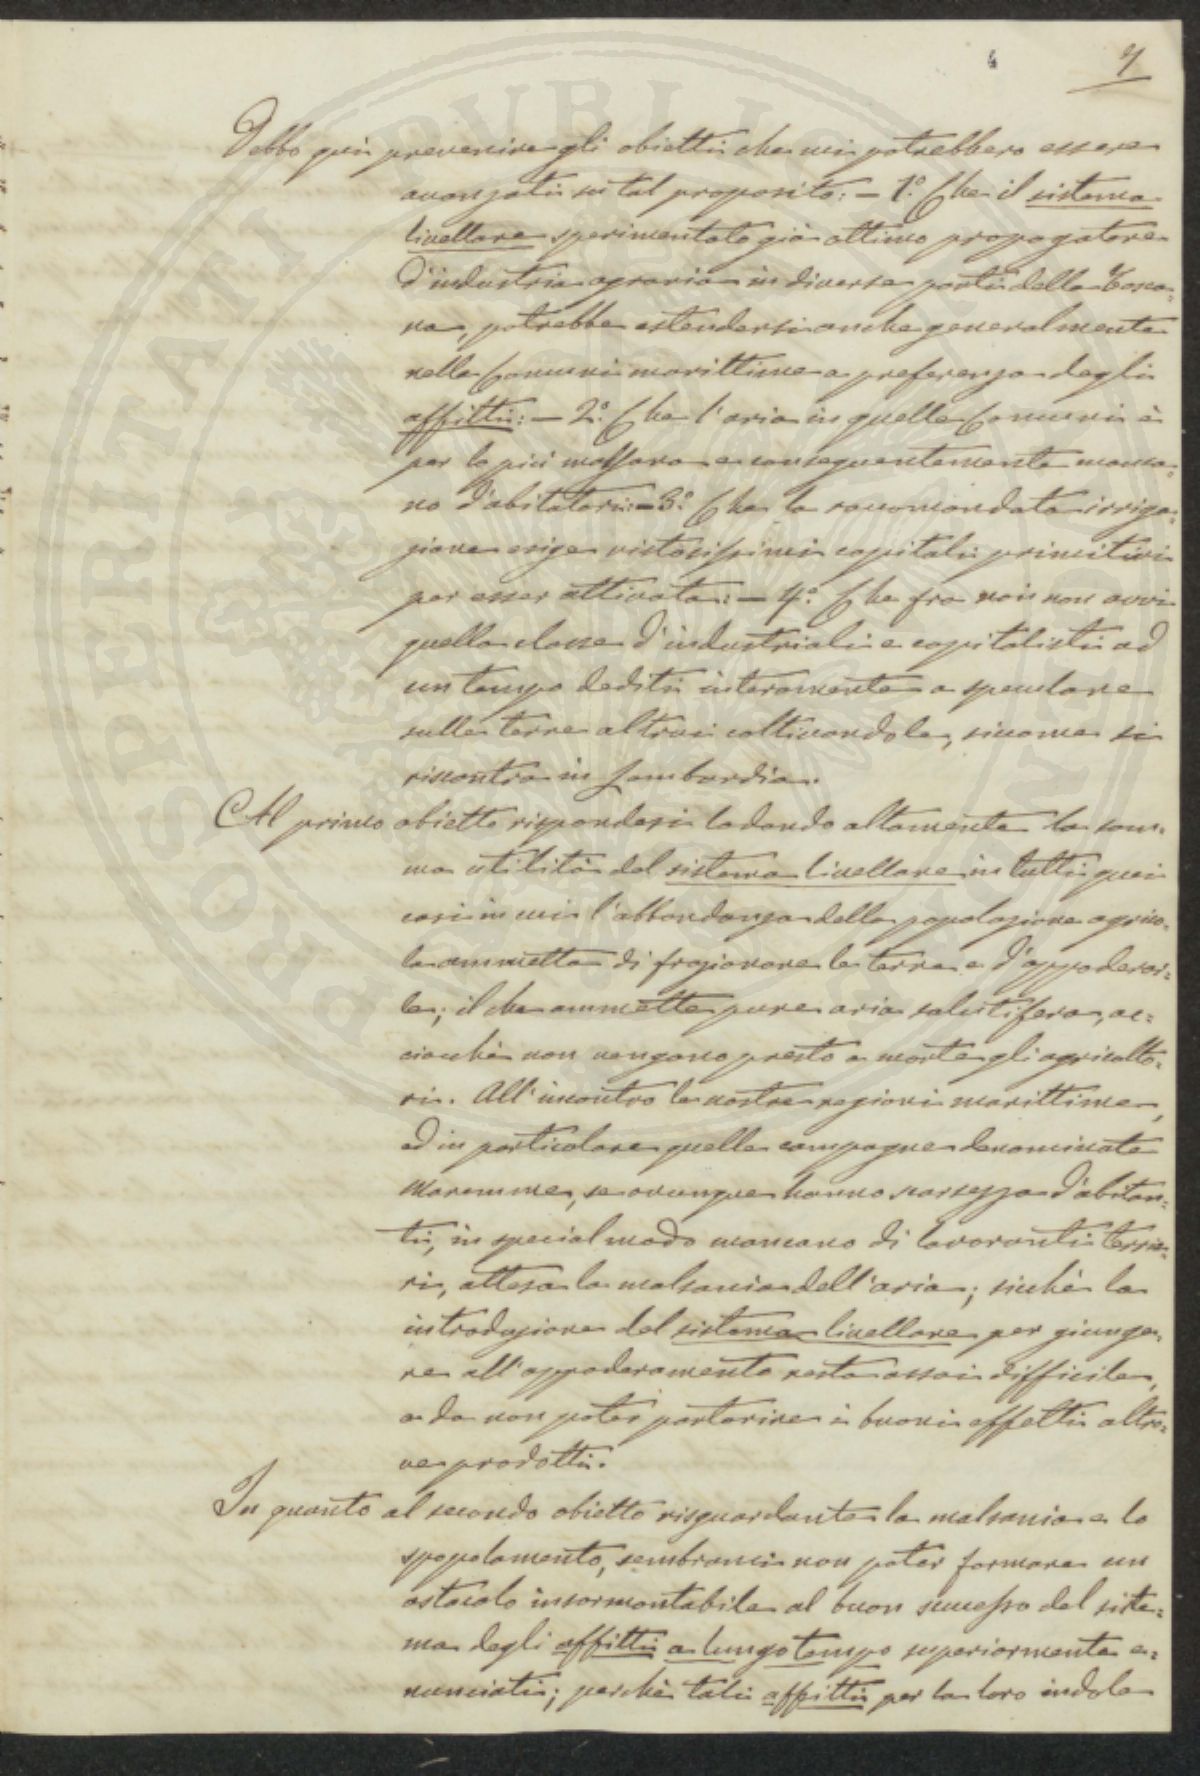 7
Debbo quì prevenire gli obietti che mi potrebbero essere
avanzati su tal proposito: — 1.° Che il sistema
livellare sperimentato già ottimo propagatore
d'industria agraria in diverse parti della Tosca=
na, potrebbe estendersi anche generalmente
nelle Comuni marittime a preferenza degli
affitti: — 2.° Che l'aria in quelle Comuni è
per lo più malsana e conseguentemente manca=
no d'abitatori: — 3.° Che la raccomandata irriga=
zione esige vistosissimi capitali primitivi
per esser attivata: — 4.° Che fra noi non avvi
quella classe d'industriali e capitalisti ad
un tempo dediti interamente a speculare
sulle terre altrui coltivandole, siccome si
riscontra in Lombardia.
Al primo obietto rispondesi lodando altamente la som=
ma utilità del sistema livellare in tutti quei
casi in cui l'abbondanza della popolazione agrico=
la ammetta di frazionare le terre e d'appoderar=
le; il che ammette pure aria salutifera, ac=
ciocchè non vengano presto a morte gli agricolto=
ri. All'incontro le nostre regioni marittime,
ed in particolare quelle campagne denominate
Maremme, se ovunque hanno scarsezza d'abitan=
ti, in special modo mancano di lavoranti terrie=
ri, attesa la malsania dell'aria; sicchè la
introduzione del sistema livellare per giunge=
re all'appoderamento resta assai difficile,
e da non poter partorire i buoni effetti altro=
ve prodotti.
In quanto al secondo obietto risguardante la malsania e lo
spopolamento, sembrami non poter formare un
ostacolo insormontabile al buon successo del siste=
ma degli affitti a lungo tempo superiormente e=
nunciati; perchè tali affitti per la loro indole
PROSPERITATI PUBLICAE